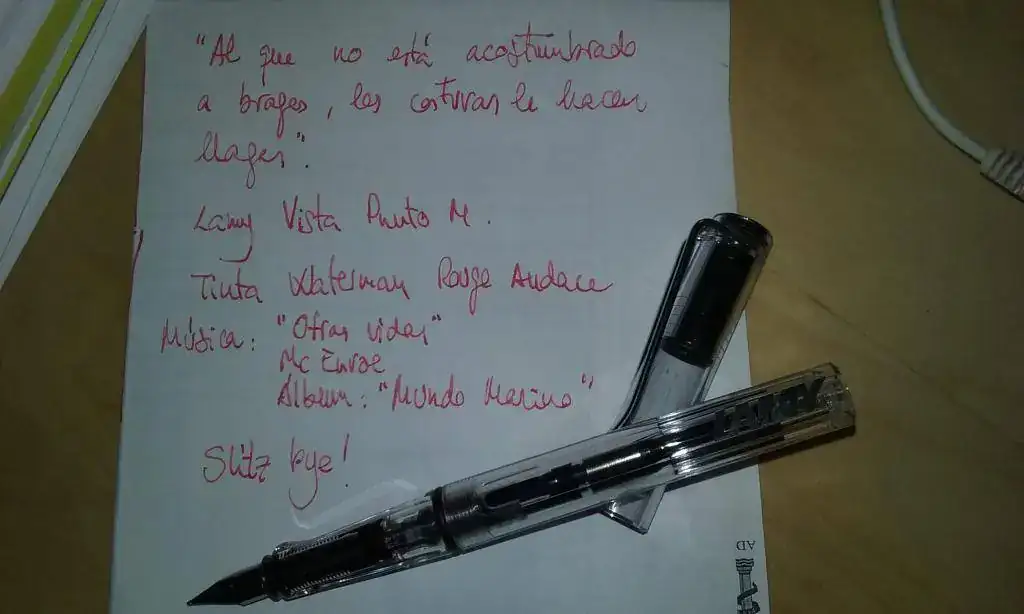 "Al que no está acostumbrado
a brages, las costuras le hacen
llages".
Lamy Vista Punto M.
Tinta Waterman Rouge Audace
Música: "Otras vidas"
Mc Enroe
Álbum: "Mundo Marino"
Slitz bye!
LAMY
AD